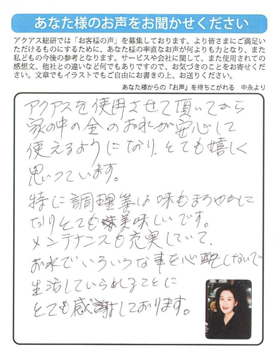 あなた様のお声をお聞かせください
アクアス総研では「お客様の声」を募集しております。より皆さまにご満足い
ただけるものにするために、あなた様の率直なお声が何よりも力となり、また私
ども今後の参考となります。サービスや会社に関して、また使用されての
感想文、他社との違いなど何でもありですので、お気づきのことをお寄せくださ
い。文章でもイラストでもご自由にお書きの上、お送りください。
あなた様からの『お声』を待ちこがれる 中永より
アクアスを使用させて頂いてから
家の中の全のお水が安心して
使えるようになり、とても嬉しく
思っています。
特に調理等は味もまろやかに
なりとても美味しいです。
メンテナンスも充実していて、
お水でいろいろな事を心配しないで
生活していられることに
とても感謝しております。